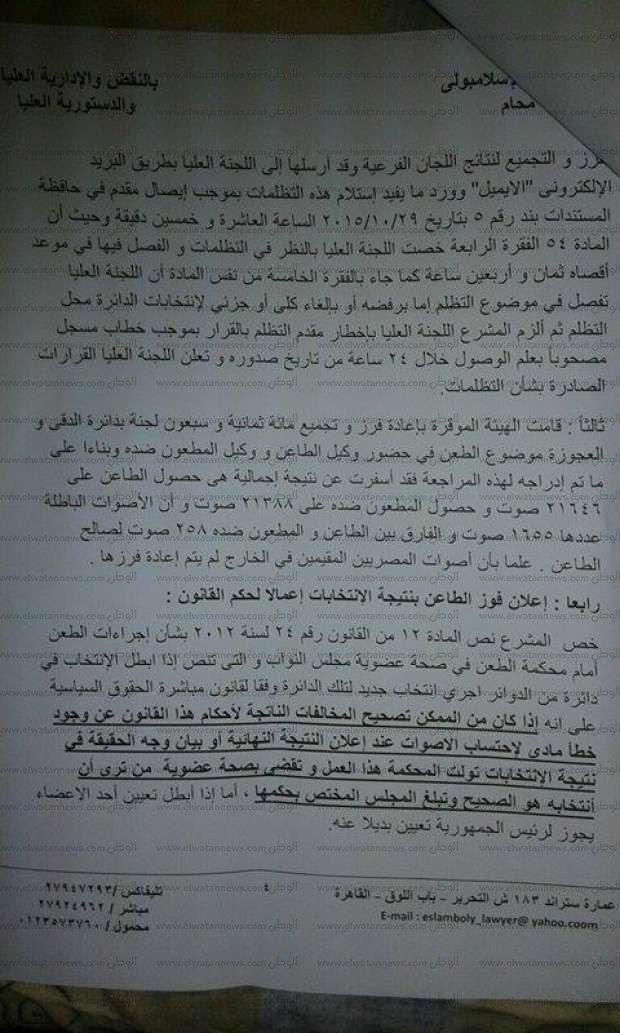 بالنقض والإدارية العليا
والدستورية العليا
إسلامبولى
محام
فرز و التجميع لنتائج اللجان الفرعية وقد أرسلها الى اللجنة العليا بطريق البريد
الإلكترونى "الايميل" وورد ما يفيد إستلام هذه التظلمات بموجب إيصال مقدم في حافظة
المستندات بند رقم ٥ بتاريخ ٢٠١٥/١٠/٢٩ الساعة العاشرة و خمسين دقيقة وحيث أن
المادة ٥٤ الفقرة الرابعة خصت اللجنة العليا بالنظر في التظلمات و الفصل فيها في موعد
أقصاه ثمان و أربعين ساعة كما جاء بالفقرة الخامسة من نفس المادة أن اللجنة العليا
تفصل في موضوع التظلم إما برفضه أو بإلغاء كلى أو جزئي لإنتخابات الدائرة محل
التظلم ثم ألزم المشرع اللجنة العليا بإخطار مقدم التظلم بالقرار بموجب خطاب مسجل
مصحوباً بعلم الوصول خلال ٢٤ ساعة من تاريخ صدوره و تعلن اللجنة العليا القرارات
الصادرة بشأن التظلمات.
ثالثاً : قامت الهيئة الموقرة بإعادة فرز و تجميع مائة ثمانية و سبعون لجنة بدائرة الدقى و
العجوزة موضوع الطعن في حضور وكيل الطاعن و وكيل المطعون ضده وبناءا على
ما تم إدراجه لهذه المراجعة فقد أسفرت عن نتيجة إجمالية هى حصول الطاعن على
٢١٦٤٦ صوت و حصول المطعون ضده على ٢١٣٨٨ صوت و أن الأصوات الباطلة
عددها ١٦٥٥ صوت و الفارق بين الطاعن و المطعون ضده ٢٥٨ صوت لصالح
الطاعن . علما بأن أصوات المصريين المقيمين في الخارج لم يتم إعادة فرزها .
رابعا : إعلان فوز الطاعن بنتيجة الإنتخابات إعمالا لحكم القانون :
خص المشرع نص المادة ١٢ من القانون رقم ٢٤ لسنة ٢٠١٢ بشأن إجراءات الطعن
أمام محكمة الطعن في صحة عضوية مجلس النواب و التى تنص إذا ابطل الإنتخاب في
دائرة من الدوائر اجري انتخاب جديد لتلك الدائرة وفقا لقانون مباشرة الحقوق السياسية
على انه إذا كان من الممكن تصحيح المخالفات الناتجة لأحكام هذا القانون عن وجود
خطأ مادى لاحتساب الاصوات عند إعلان النتيجة النهائية أو بيان وجه الحقيقة في
نتيجة الإنتخابات تولت المحكمة هذا العمل و تقضى بصحة عضوية من ترى أن
أنتخابه هو الصحيح وتبلغ المجلس المختص بحكمها ، أما إذا أبطل تعيين أحد الاعضاء
يجوز لرئيس الجمهورية تعيين بديلا عنه.
عمارة ستراند ١٨٣ ش التحرير – باب اللوق – القاهرة
E-mail : eslamboly_lawyer@ yahoo.coom
٤
تليفاكس / ٢٧٩٤٧٢٩٣
مباشر / ٢٧٩٢٤٩٦٢
محمول / ٠١٢٣٥٧٣٧٦٠
الوطن www.elwatannews.com